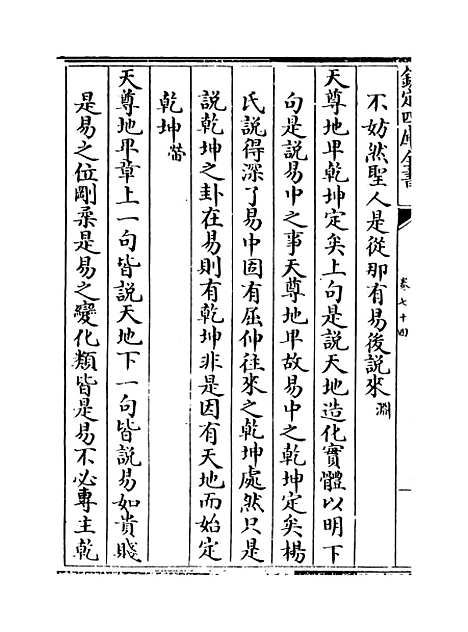 欽定四庫全書
卷七十四
不妨然聖人是從那有易後說來淵
天尊地卑乾坤定矣上句是說天地造化實體以明下
句是說易中之事天尊地卑故易中之乾坤定矣楊
氏說得深了易中固有屈伸往來之乾坤處然只是
說乾坤之卦在易則有乾坤非是因有天地而始定
乾坤㽦
天尊地卑章上一句皆說天地下一句皆說易如貴賤
是易之位剛柔是易之變化類皆是易不必專主乾